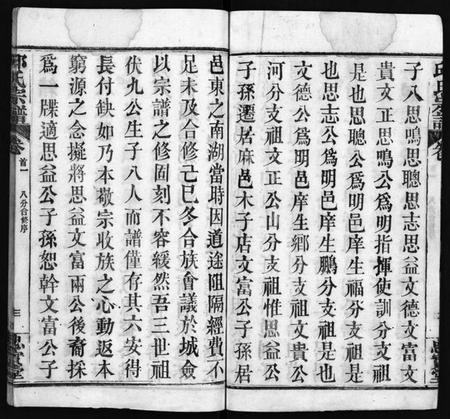 子八思鳴思聰思志思益文德文富文
貴文正思鳴公爲明指揮使訓分支祖
是也思聰公爲明邑庠生福分支祖是
也思志公爲明邑庠生鵬分支祖是也
文德公爲明邑庠生鄉分支祖文貴公
河分支祖文正公山分支祖惟思益公
子孫遷居麻邑木子店文富公子孫居
邑東之南湖當時因道途阻隔經費不
足未及合修己巳冬合族會議於城僉
以宗譜之修固刻不容緩然吾三世祖
伏九公生子八人而譜僅存其六安得
長付缺如乃本敬宗收族之心動返本
窮源之念擬將思益文富兩公後裔採
爲一牒適思益公子孫恕幹文富公子
邱氏宗譜
卷
首一
八分合修序
三
忠實堂